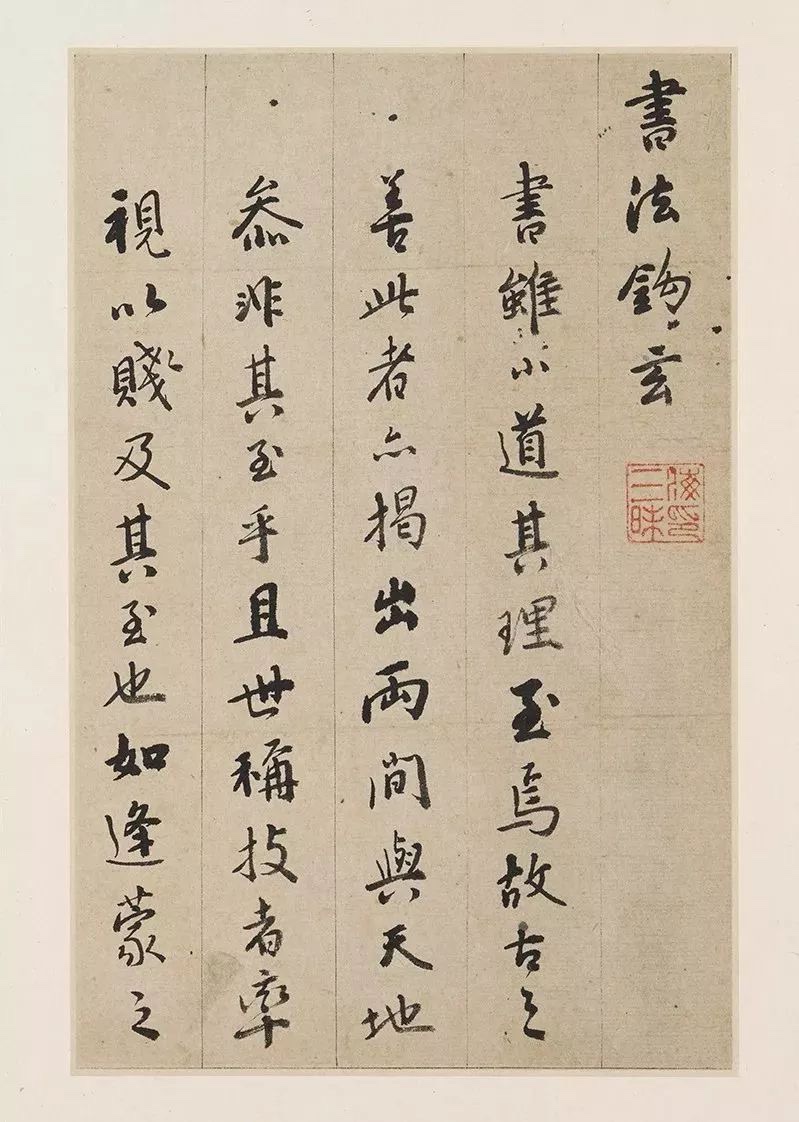 書法鈎玄
海印三昧
書雖小道其理至焉故古之
善此者亦揭出兩間與天地
叅非其至乎且世稱技者率
視以賤及其至也如逢蒙之